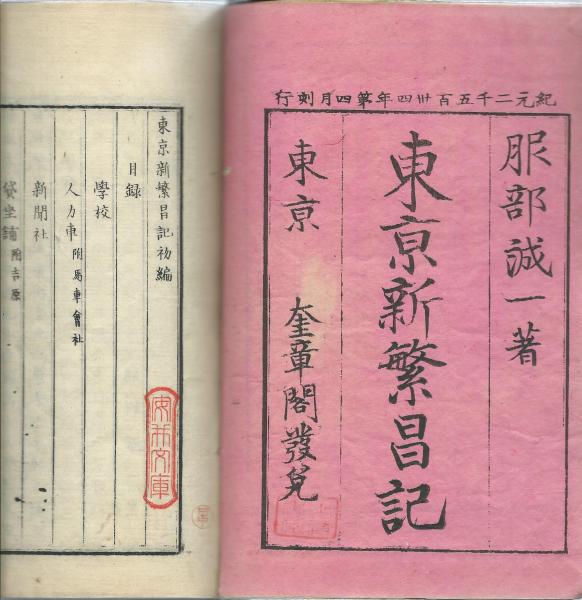 紀元二千五百卅四年第四月刻行
服部誠一著
東亰新繁昌記
東亰　奎章閣發兌
東京新繁昌記初編
目録
學校
人力車 附馬車會社
新聞社
貸坐鋪 附吉原